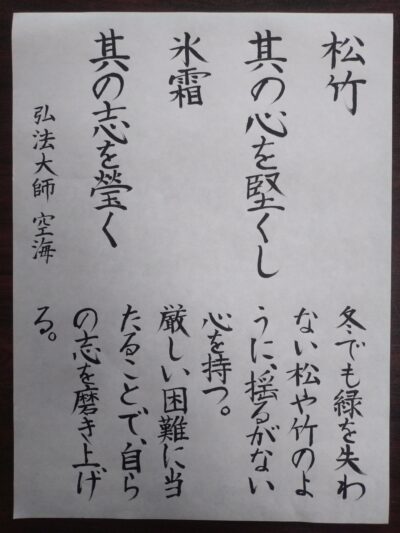 松竹
其の心を堅くし
氷霜
其の志を瑩く
弘法大師 空海
冬でも緑を失わ
ない松や竹のよ
うに、揺るがない
心を持つ。
厳しい困難に当
たることで、自ら
の志を磨き上げ
る。